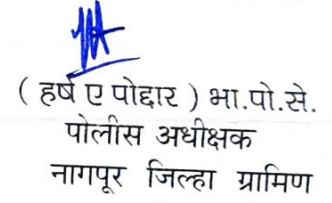 ( हर्ष ए पोद्दार ) भा.पो.से.
पोलीस अधीक्षक
नागपूर जिल्हा ग्रामिण